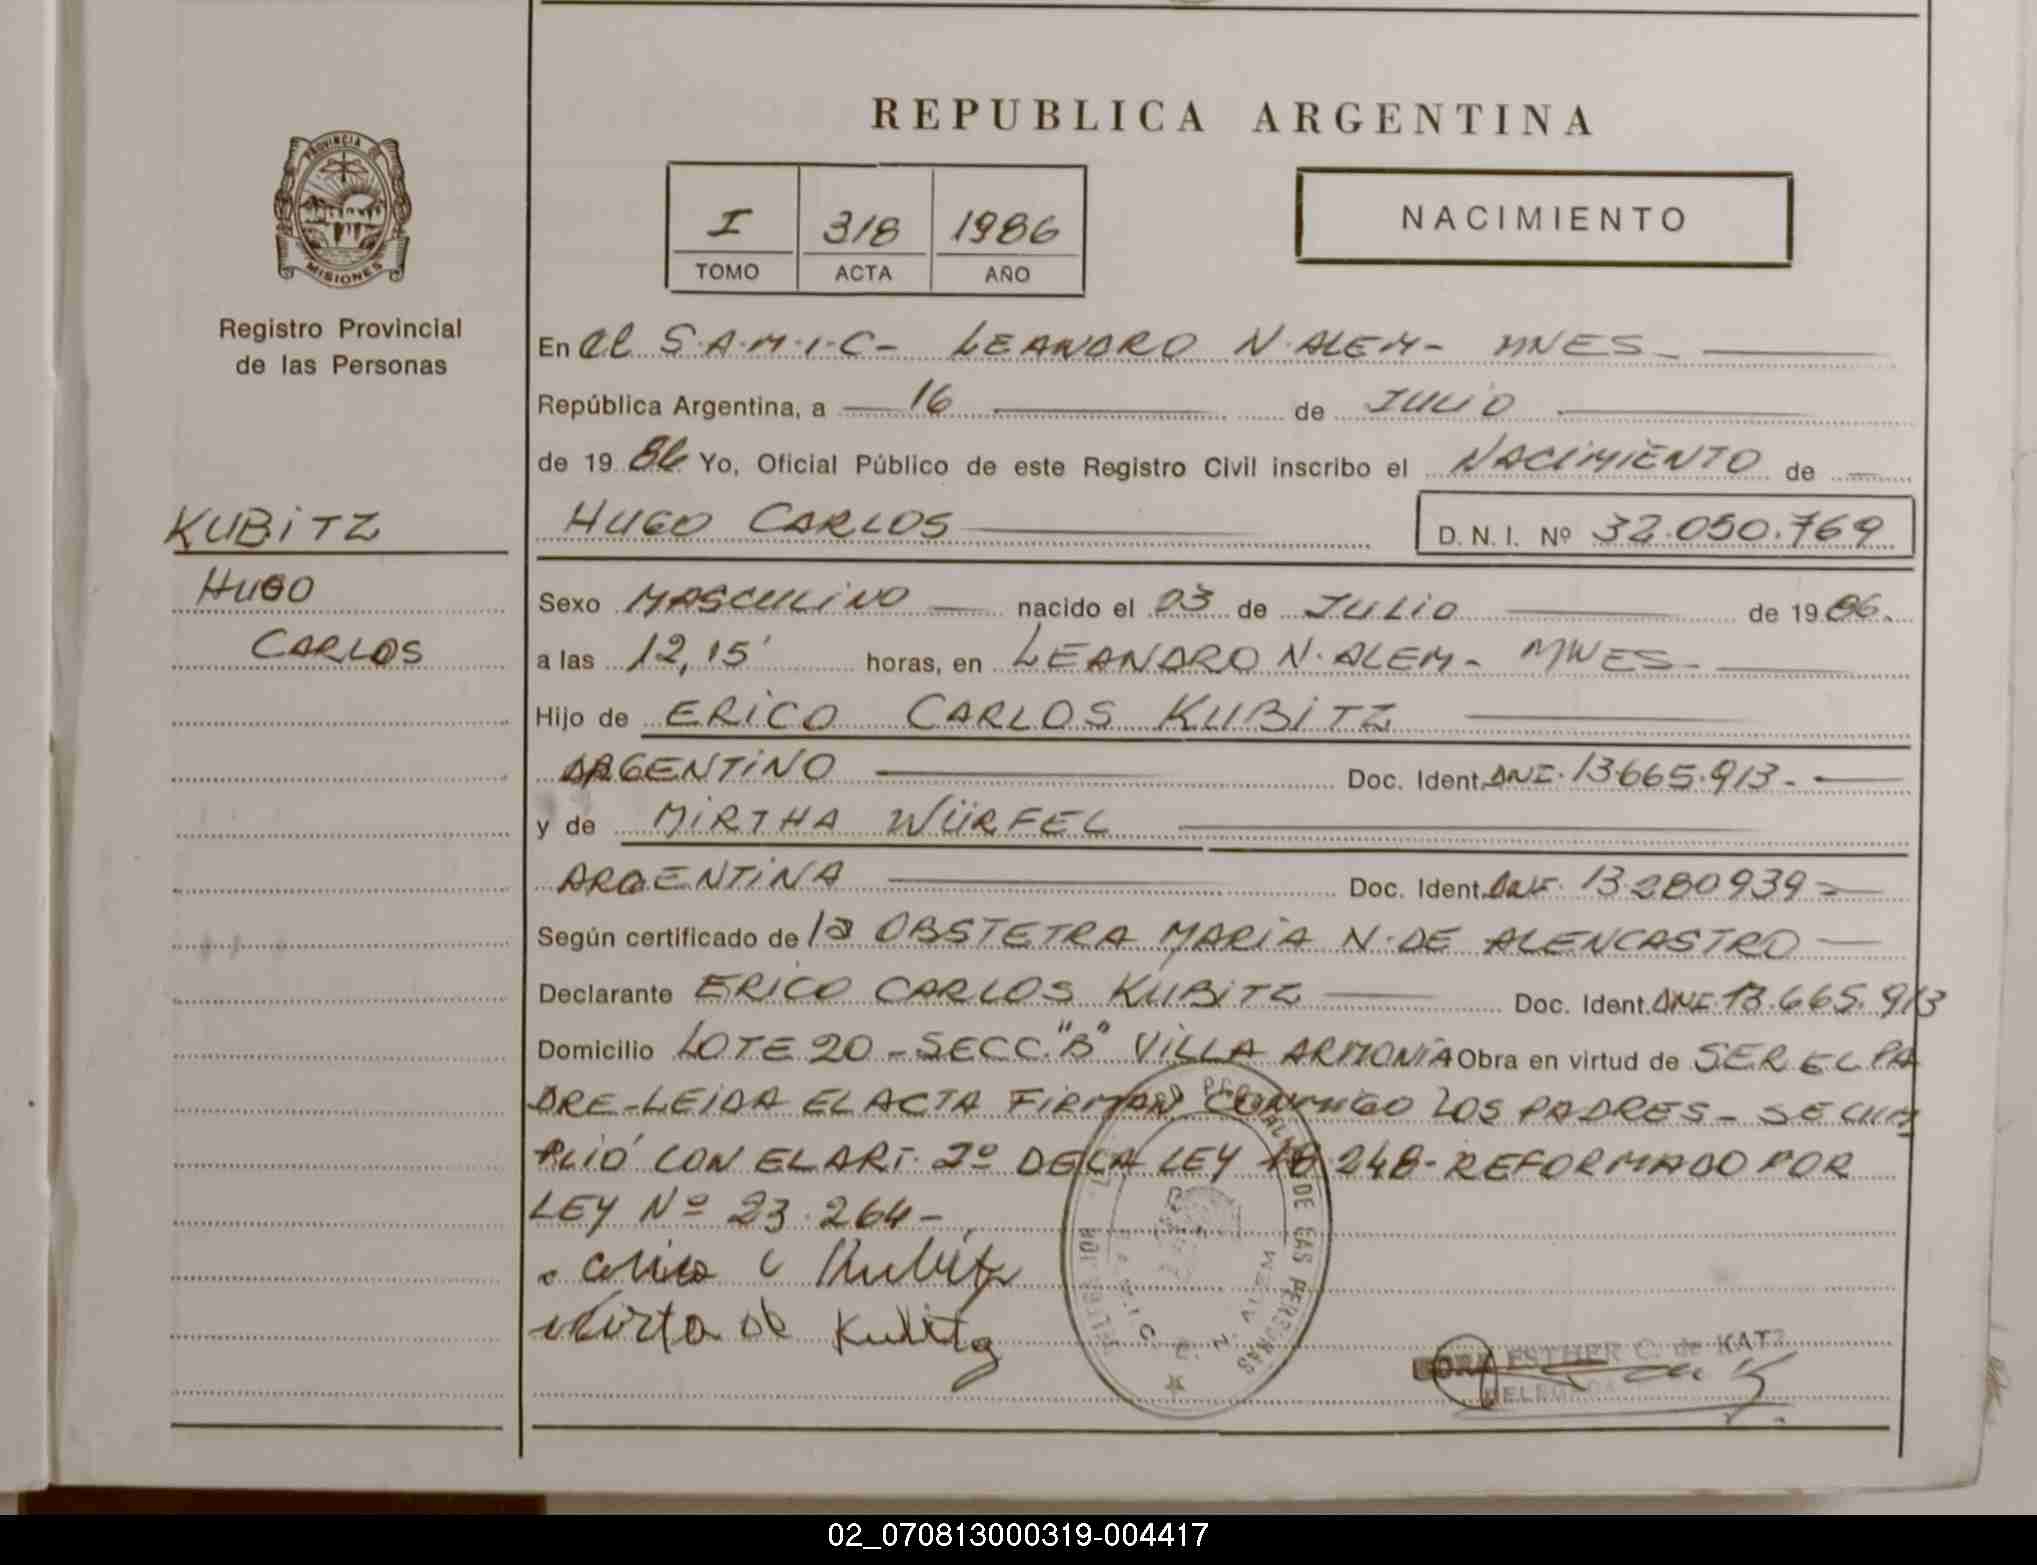 REPUBLICA ARGENTINA
PROVINCIA DE
MISIONES
Registro Provincial
de las Personas
I 318 1986
TOMO ACTA AÑO
NACIMIENTO
En el S.A.M.I.C- LEANDRO N. ALEM- MNES-
República Argentina, a 16 de JULIO
de 19 86 Yo, Oficial Público de este Registro Civil inscribo el NACIMIENTO de
KUBITZ
HUGO CARLOS D. N. I. Nº 32.050.769
HUGO
CARLOS
Sexo MASCULINO nacido el 03 de JULIO de 19 86.
a las 12,15' horas, en LEANDRO N. ALEM- MNES-
Hijo de ERICO CARLOS KUBITZ
ARGENTINO Doc. Ident. DNI. 13.665.913-
y de MIRTHA WÜRFEL
ARGENTINA Doc. Ident. DNI. 13.280939-
Según certificado de la OBSTETRA MARIA N. DE ALENCASTRO
Declarante ERICO CARLOS KUBITZ Doc. Ident. DNI 13.665.913
Domicilio LOTE 20-SECC."B" VILLA ARMONIA Obra en virtud de SER EL PA
DRE-LEIDA EL ACTA FIRMAN CONMIGO LOS PADRES- SE CUM
PLIÓ CON EL ART. 2º DE LA LEY 18.248-REFORMADO POR
LEY Nº 23.264-
Erico C Kubitz
Mirta de Kubitz
DE LAS PERSONAS
N. ALEM
DORA ESTHER C. de KATZ
DELEGADA
02_070813000319-004417